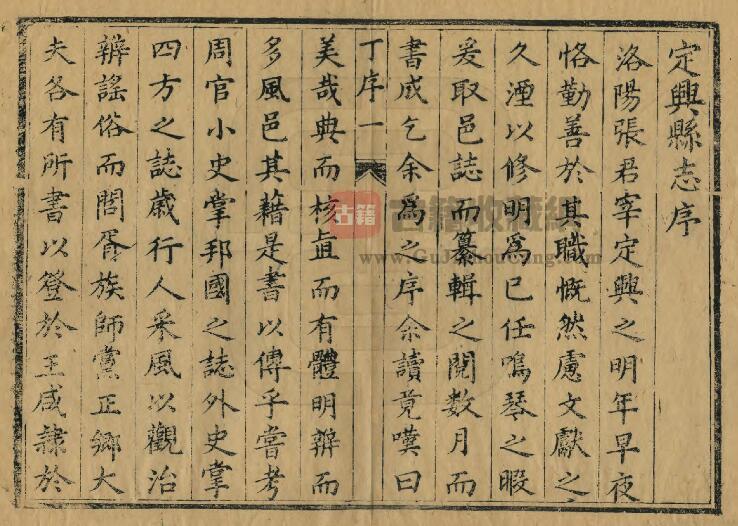 定興縣志序
洛陽張君宰定興之明年早夜
恪勤善於其職慨然慮文獻之
久湮以修明為已任鳴琴之暇
爰取邑誌而纂輯之閱数月而
書成乞余為之序余讀竟嘆曰
丁序一
美哉典而核直而有體明辨而
多風邑其藉是書以傳乎嘗考
周官小史掌邦國之誌外史掌
四方之誌歲行人采風以觀治
辨謠俗而閭胥族師黨正鄉大
夫各有所書以登於王咸隸於
古籍
古籍收藏網
www.GuJiShouCang.com